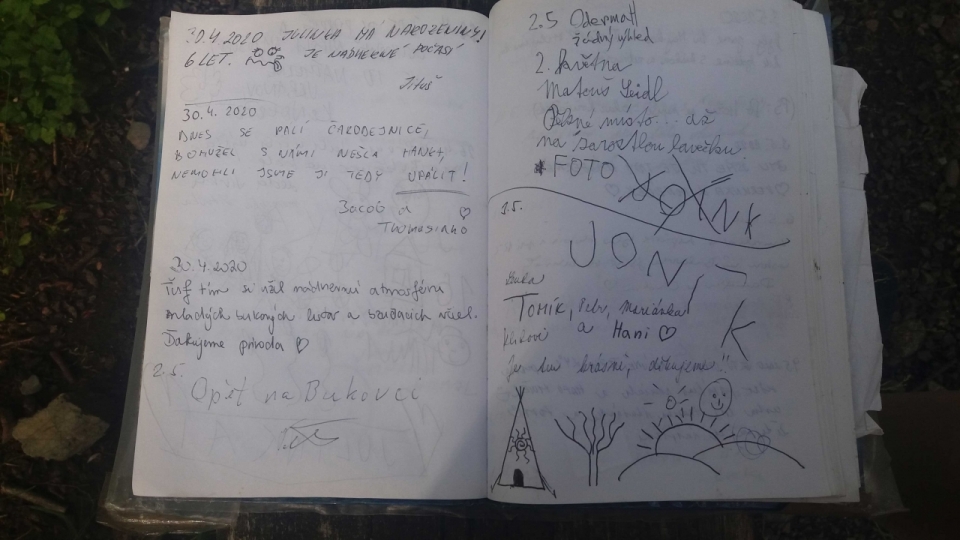 30.4 2020 JULINKA MÁ NAROZENINY!
6 LET. JE NÁDHERNÉ POČASÍ
30.4. 2020
DNES SE PÁLÍ ČARODEJNICE,
BOHUŽEL S NÁMI NEŠLA HANET,
NEMOHLI JSME JI TEDY UPÁLIT!
Jacob a
30.4.2020
Turf tím si užil nádhernou atmosféru
mladých bukových listov a včiel.
Ďakujeme príroda
2.5.
Opět na Bukovci
2.5 Odermatt
žádný výhled
2. května
Matouš Seidl
Pěkné místo... až
na zarostlou lavičku.
FOTO
JONI
K
Tomík, Petr, Mariánka
a Hani
Je tu krásně, děkujeme!!